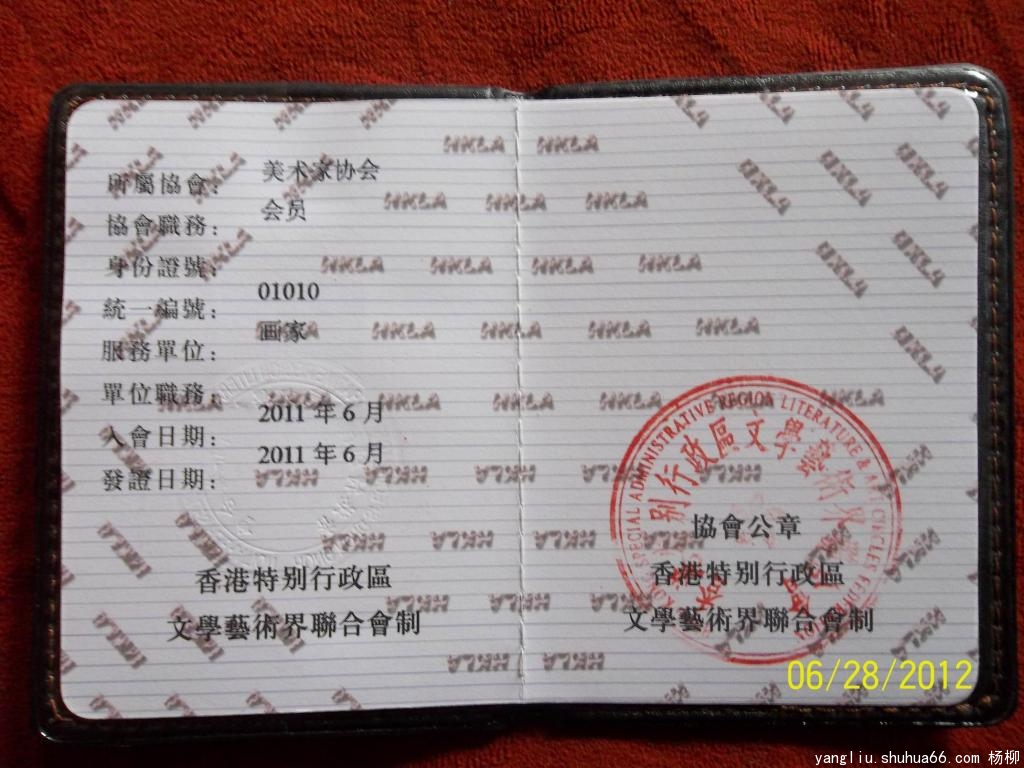 所屬協會： 美术家协会
協會職務： 会员
身份證號：
統一編號： 01010
服務單位： 画家
單位職務：
入會日期： 2011 年 6 月
發證日期： 2011 年 6 月
香港特别行政區
文學藝術界聯合會制
SPECIAL ADMINISTRATIVE REGION LITERATURE & ART CIRCLES
别行政區文學藝術界
協會公章
香港特别行政區
文學藝術界聯合會制
HKLA
06/28/2012
yangliu.shuhua66.com 杨柳